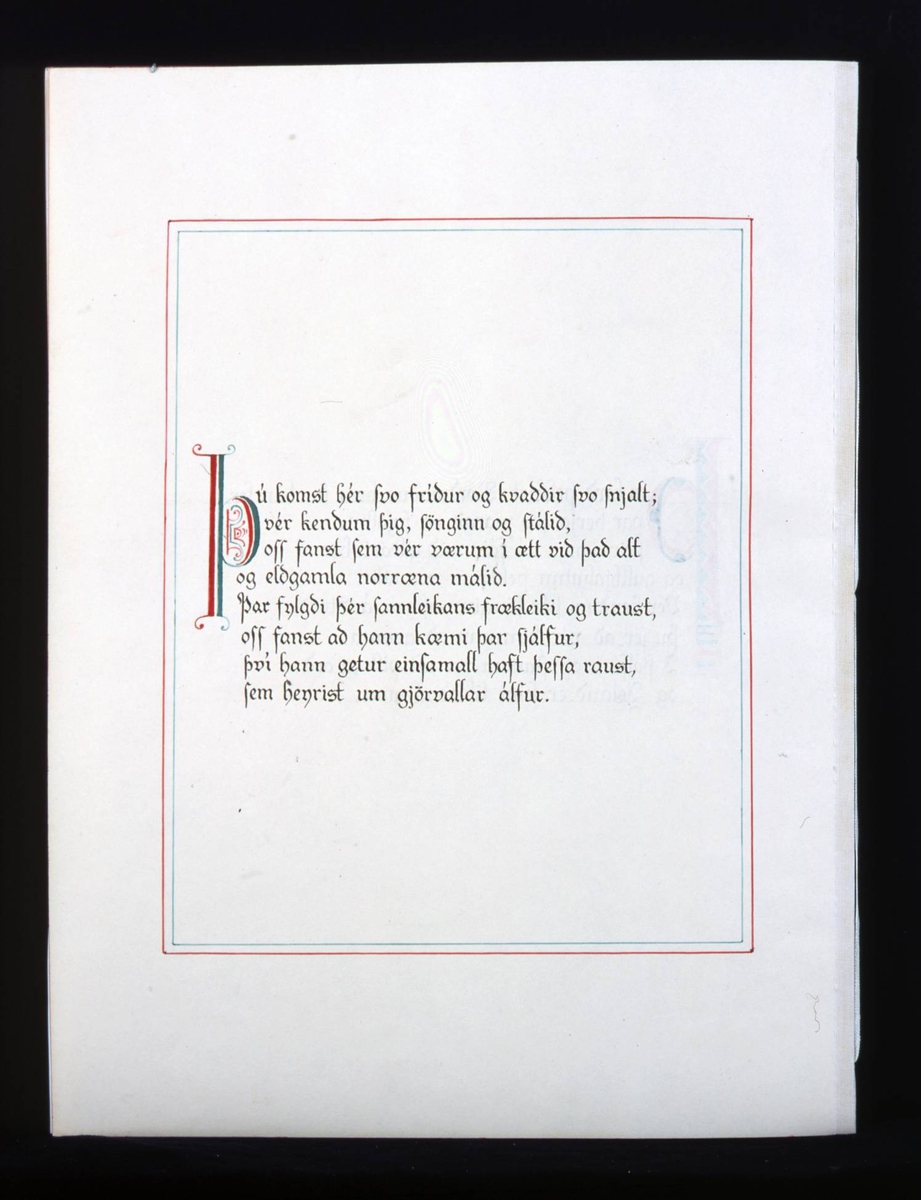 Þú komst hér svo frídur og kvaddir svo snjalt;
vér kendum þig, sönginn og stálid,
oss fanst sem vér værum í ætt vid þad alt
og eldgamla norræna málid.
Þar fylgdi þér sannleikans frækleiki og traust,
oss fanst ad hann kæmi þar sjálfur,
því hann getur einsamall haft þessa raust,
sem heyrist um gjörvallar álfur.